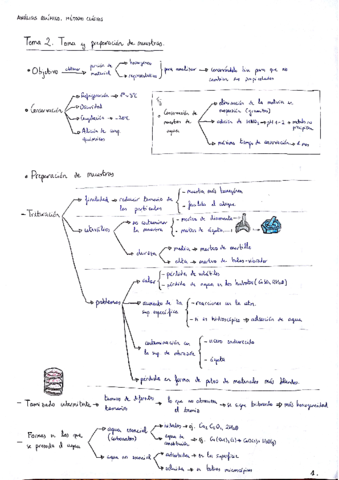 ANÁLISIS QUÍMICO. MÉTODOS CLÁSICOS
Tema 2. Toma y preparación de muestras.
• Objetivo obtener porción de material homogénea
representativa
para analizar → conservándola bien para que no cambien sus propiedades
• Conservación
Refrigeración → 1º-5ºC
Oscuridad
Congelación → -20ºC
Adición de comp. químicos
Ej
• Conservación de muestras de aguas
adición de HNO3 pH < 2 → metales no precipitan
máximo tiempo de conservación 6 mes
• Preparación de muestras
- Trituración
finalidad → reducir tamaño de las partículas
- muestra más homogénea
- facilita el ataque
utensilios
no contaminar la muestra
- morteros de
- morteros de ágata
dureza
media → mortero de martillo
alta → mortero de bolas
problemas
calor
- pérdida de volátiles
- pérdida de agua en los hidratos (CaSO4·2H2O)
aumento de la sup. específica
- reacciones con la atm.
- si es higroscópico → adsorción de agua
contaminación con la sup. de abrasión
- acero endurecido
- ágata
pérdida en forma de polvo de materiales más blandos
- Tamizado intermitente → tamices de diferentes tamaños → lo que no atraviesa el tamiz → se sigue triturando → más homogeneidad
- Formas en las que se presenta el agua
agua esencial
hidratos → ej. CaC2O4·2H2O
agua de constitución → ej. Ca(OH)2(s) → CaO(s) + H2O(g)
agua no esencial
adsorbida → en la superficie
ocluida → en huecos microscópicos
4.